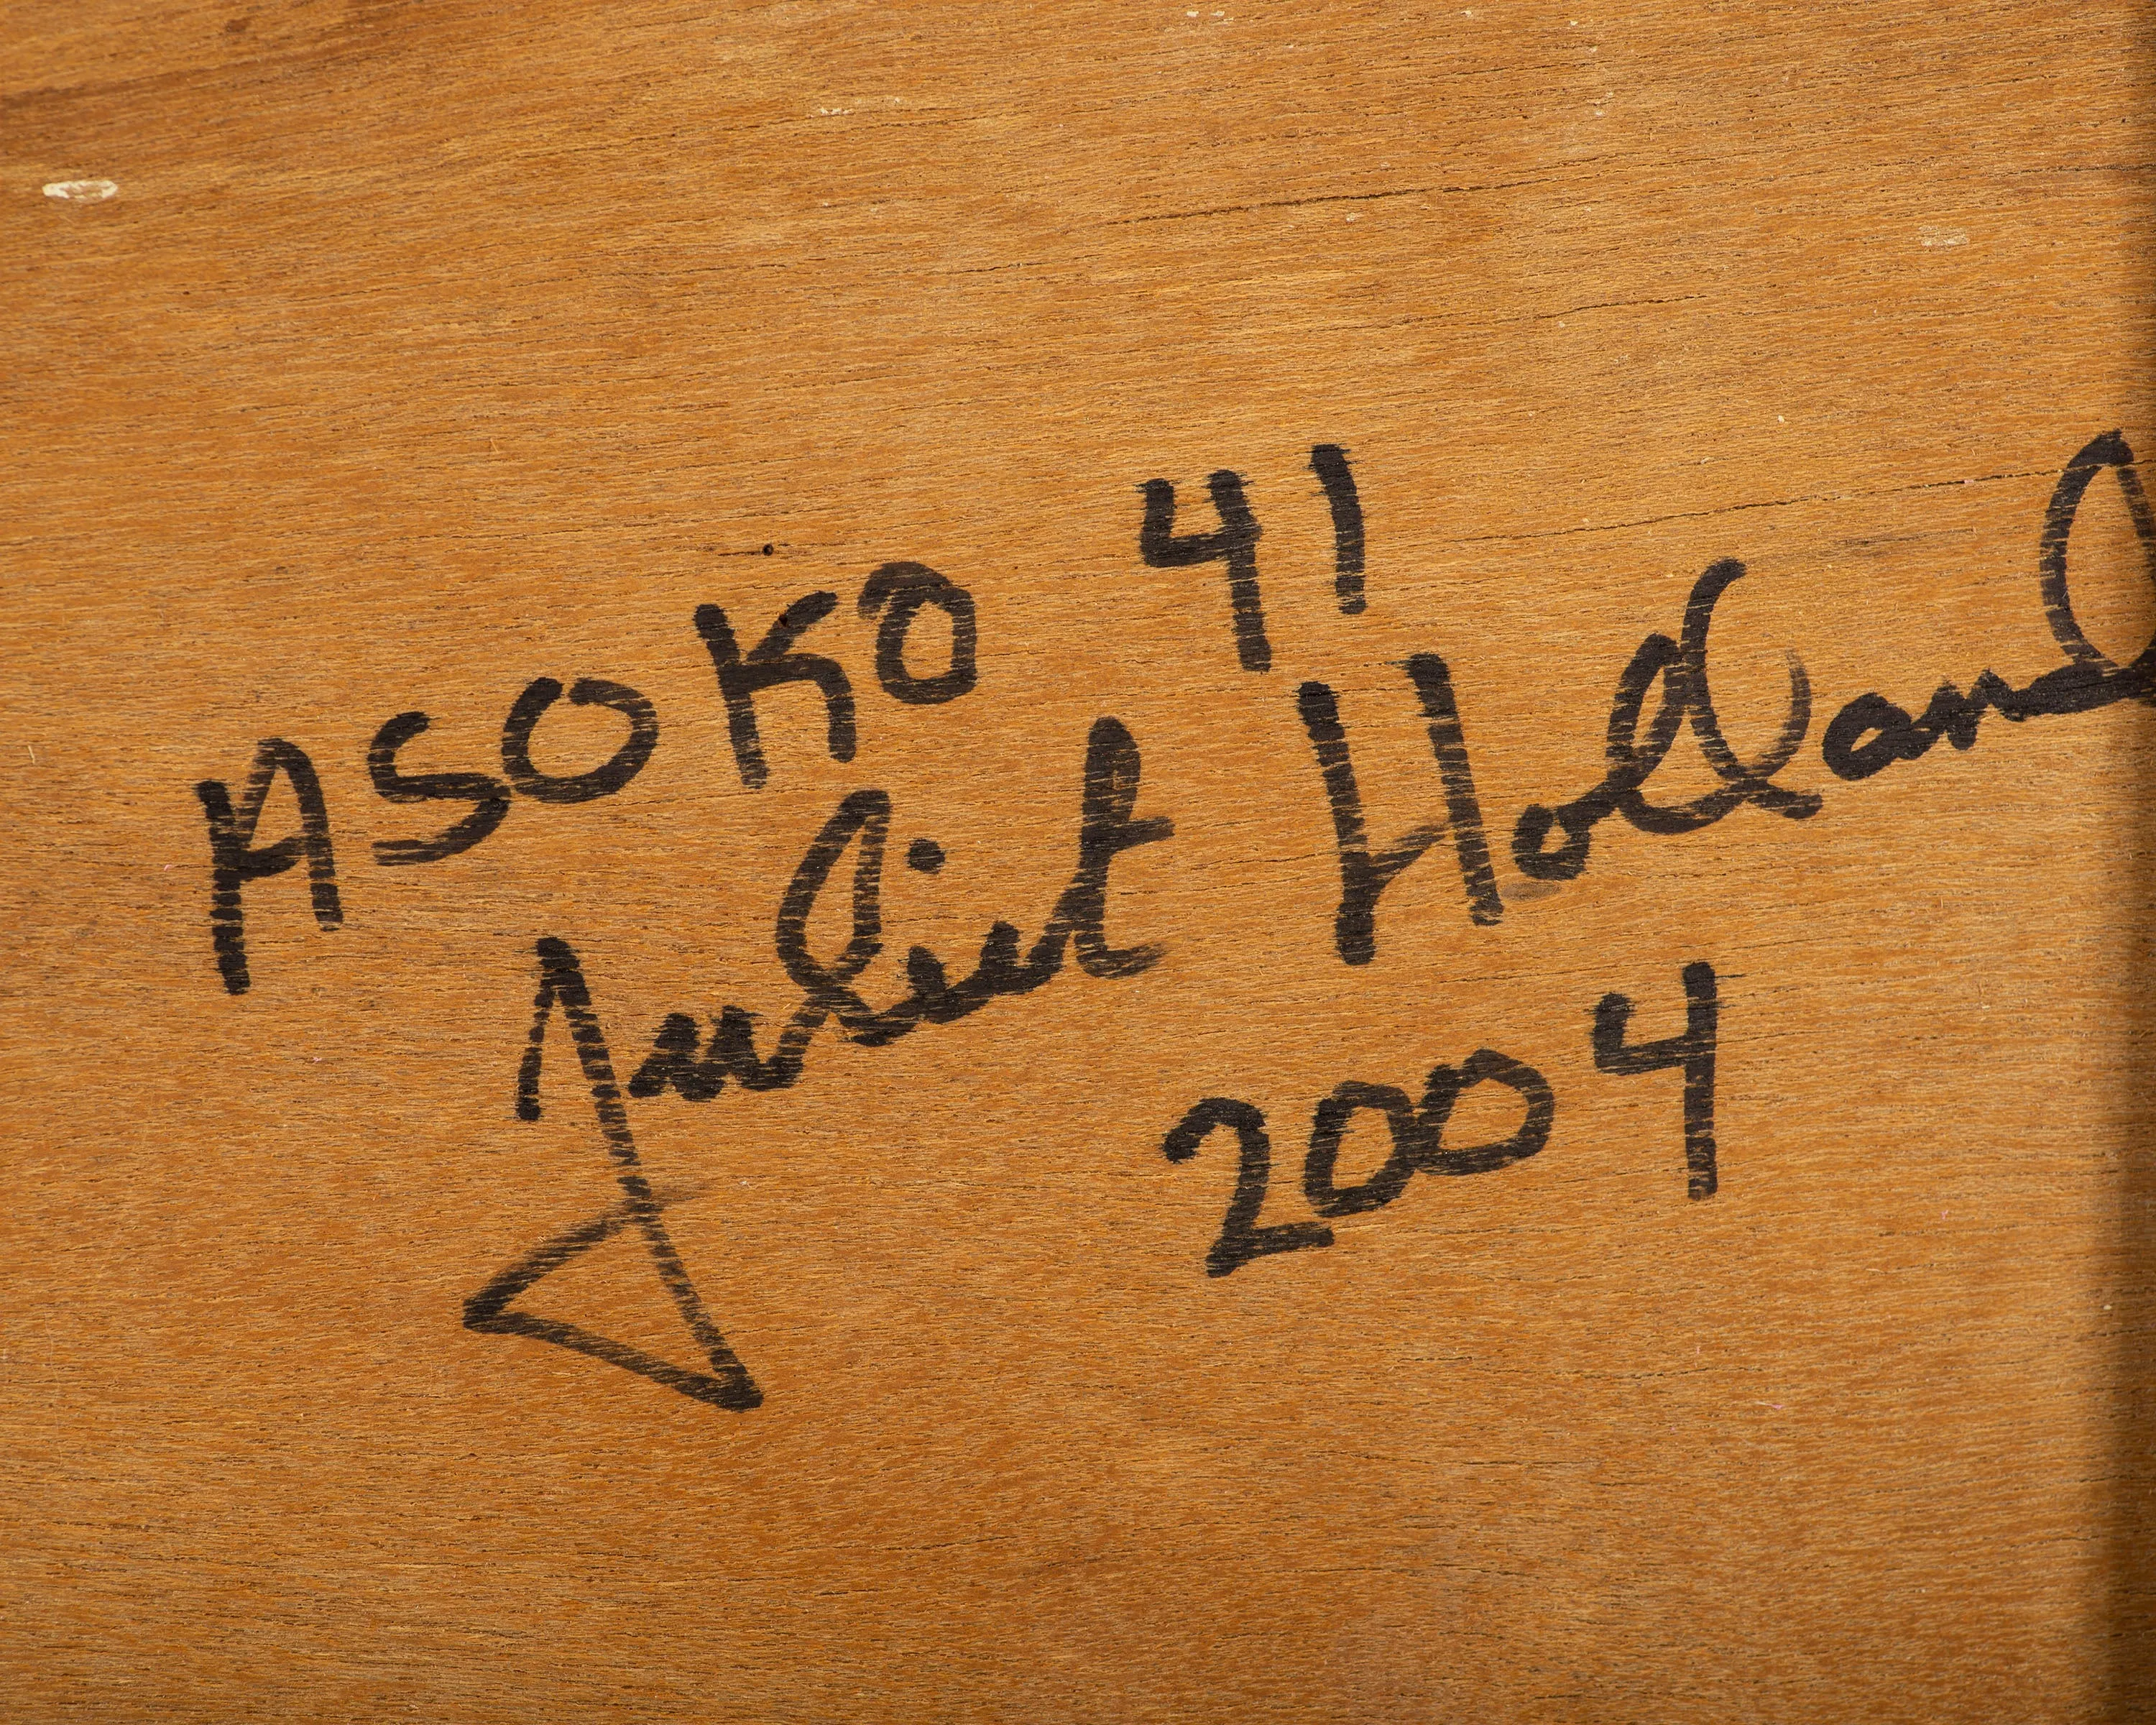 ASOKO 41
Juliet Holland
2004